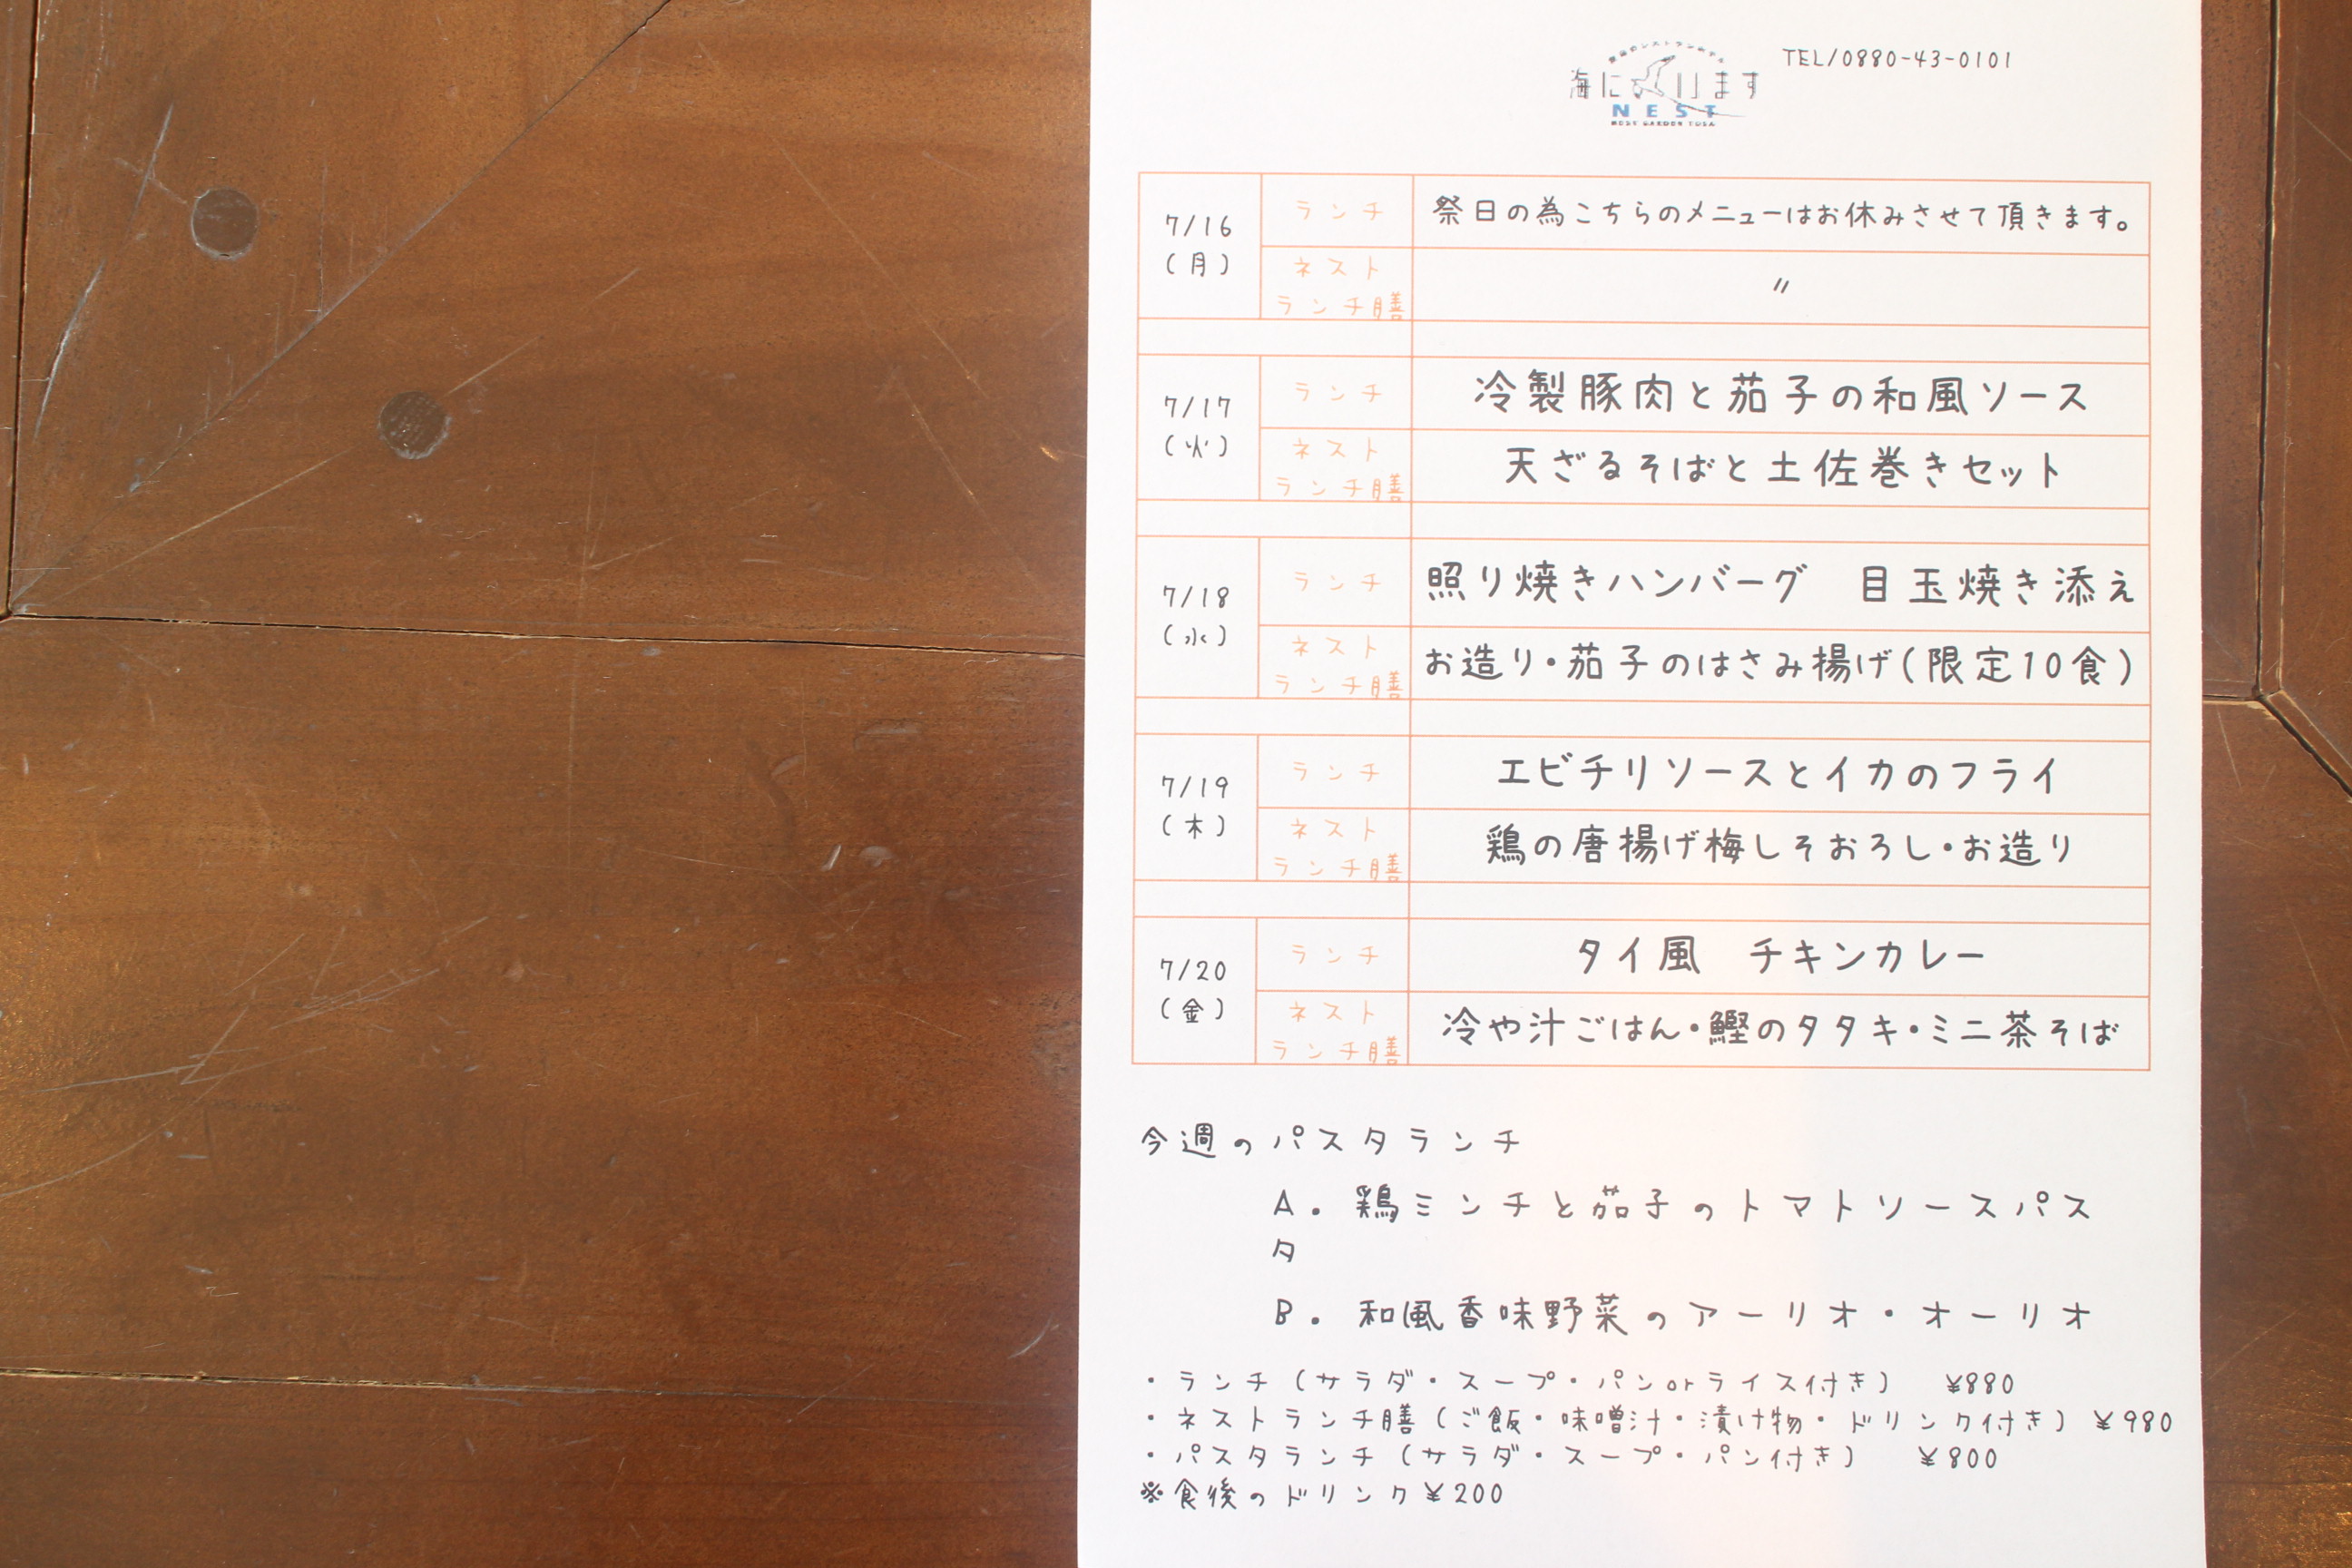 TEL/0880-43-0101
海に います
NEST
NEST GARDEN TOSA
7/16
(月)
ランチ
祭日の為こちらのメニューはお休みさせて頂きます。
ネスト
ランチ膳
〃
7/17
(火)
ランチ
冷製豚肉と茄子の和風ソース
ネスト
ランチ膳
天ざるそばと土佐巻きセット
7/18
(水)
ランチ
照り焼きハンバーグ 目玉焼き添え
ネスト
ランチ膳
お造り・茄子のはさみ揚げ(限定10食)
7/19
(木)
ランチ
エビチリソースとイカのフライ
ネスト
ランチ膳
鶏の唐揚げ梅しそおろし・お造り
7/20
(金)
ランチ
タイ風 チキンカレー
ネスト
ランチ膳
冷や汁ごはん・鰹のタタキ・ミニ茶そば
今週のパスタランチ
A. 鶏ミンチと茄子のトマトソースパス
タ
B. 和風香味野菜のアーリオ・オーリオ
・ランチ(サラダ・スープ・パンorライス付き) ¥880
・ネストランチ膳(ご飯・味噌汁・漬け物・ドリンク付き) ¥980
・パスタランチ(サラダ・スープ・パン付き) ¥800
※食後のドリンク¥200